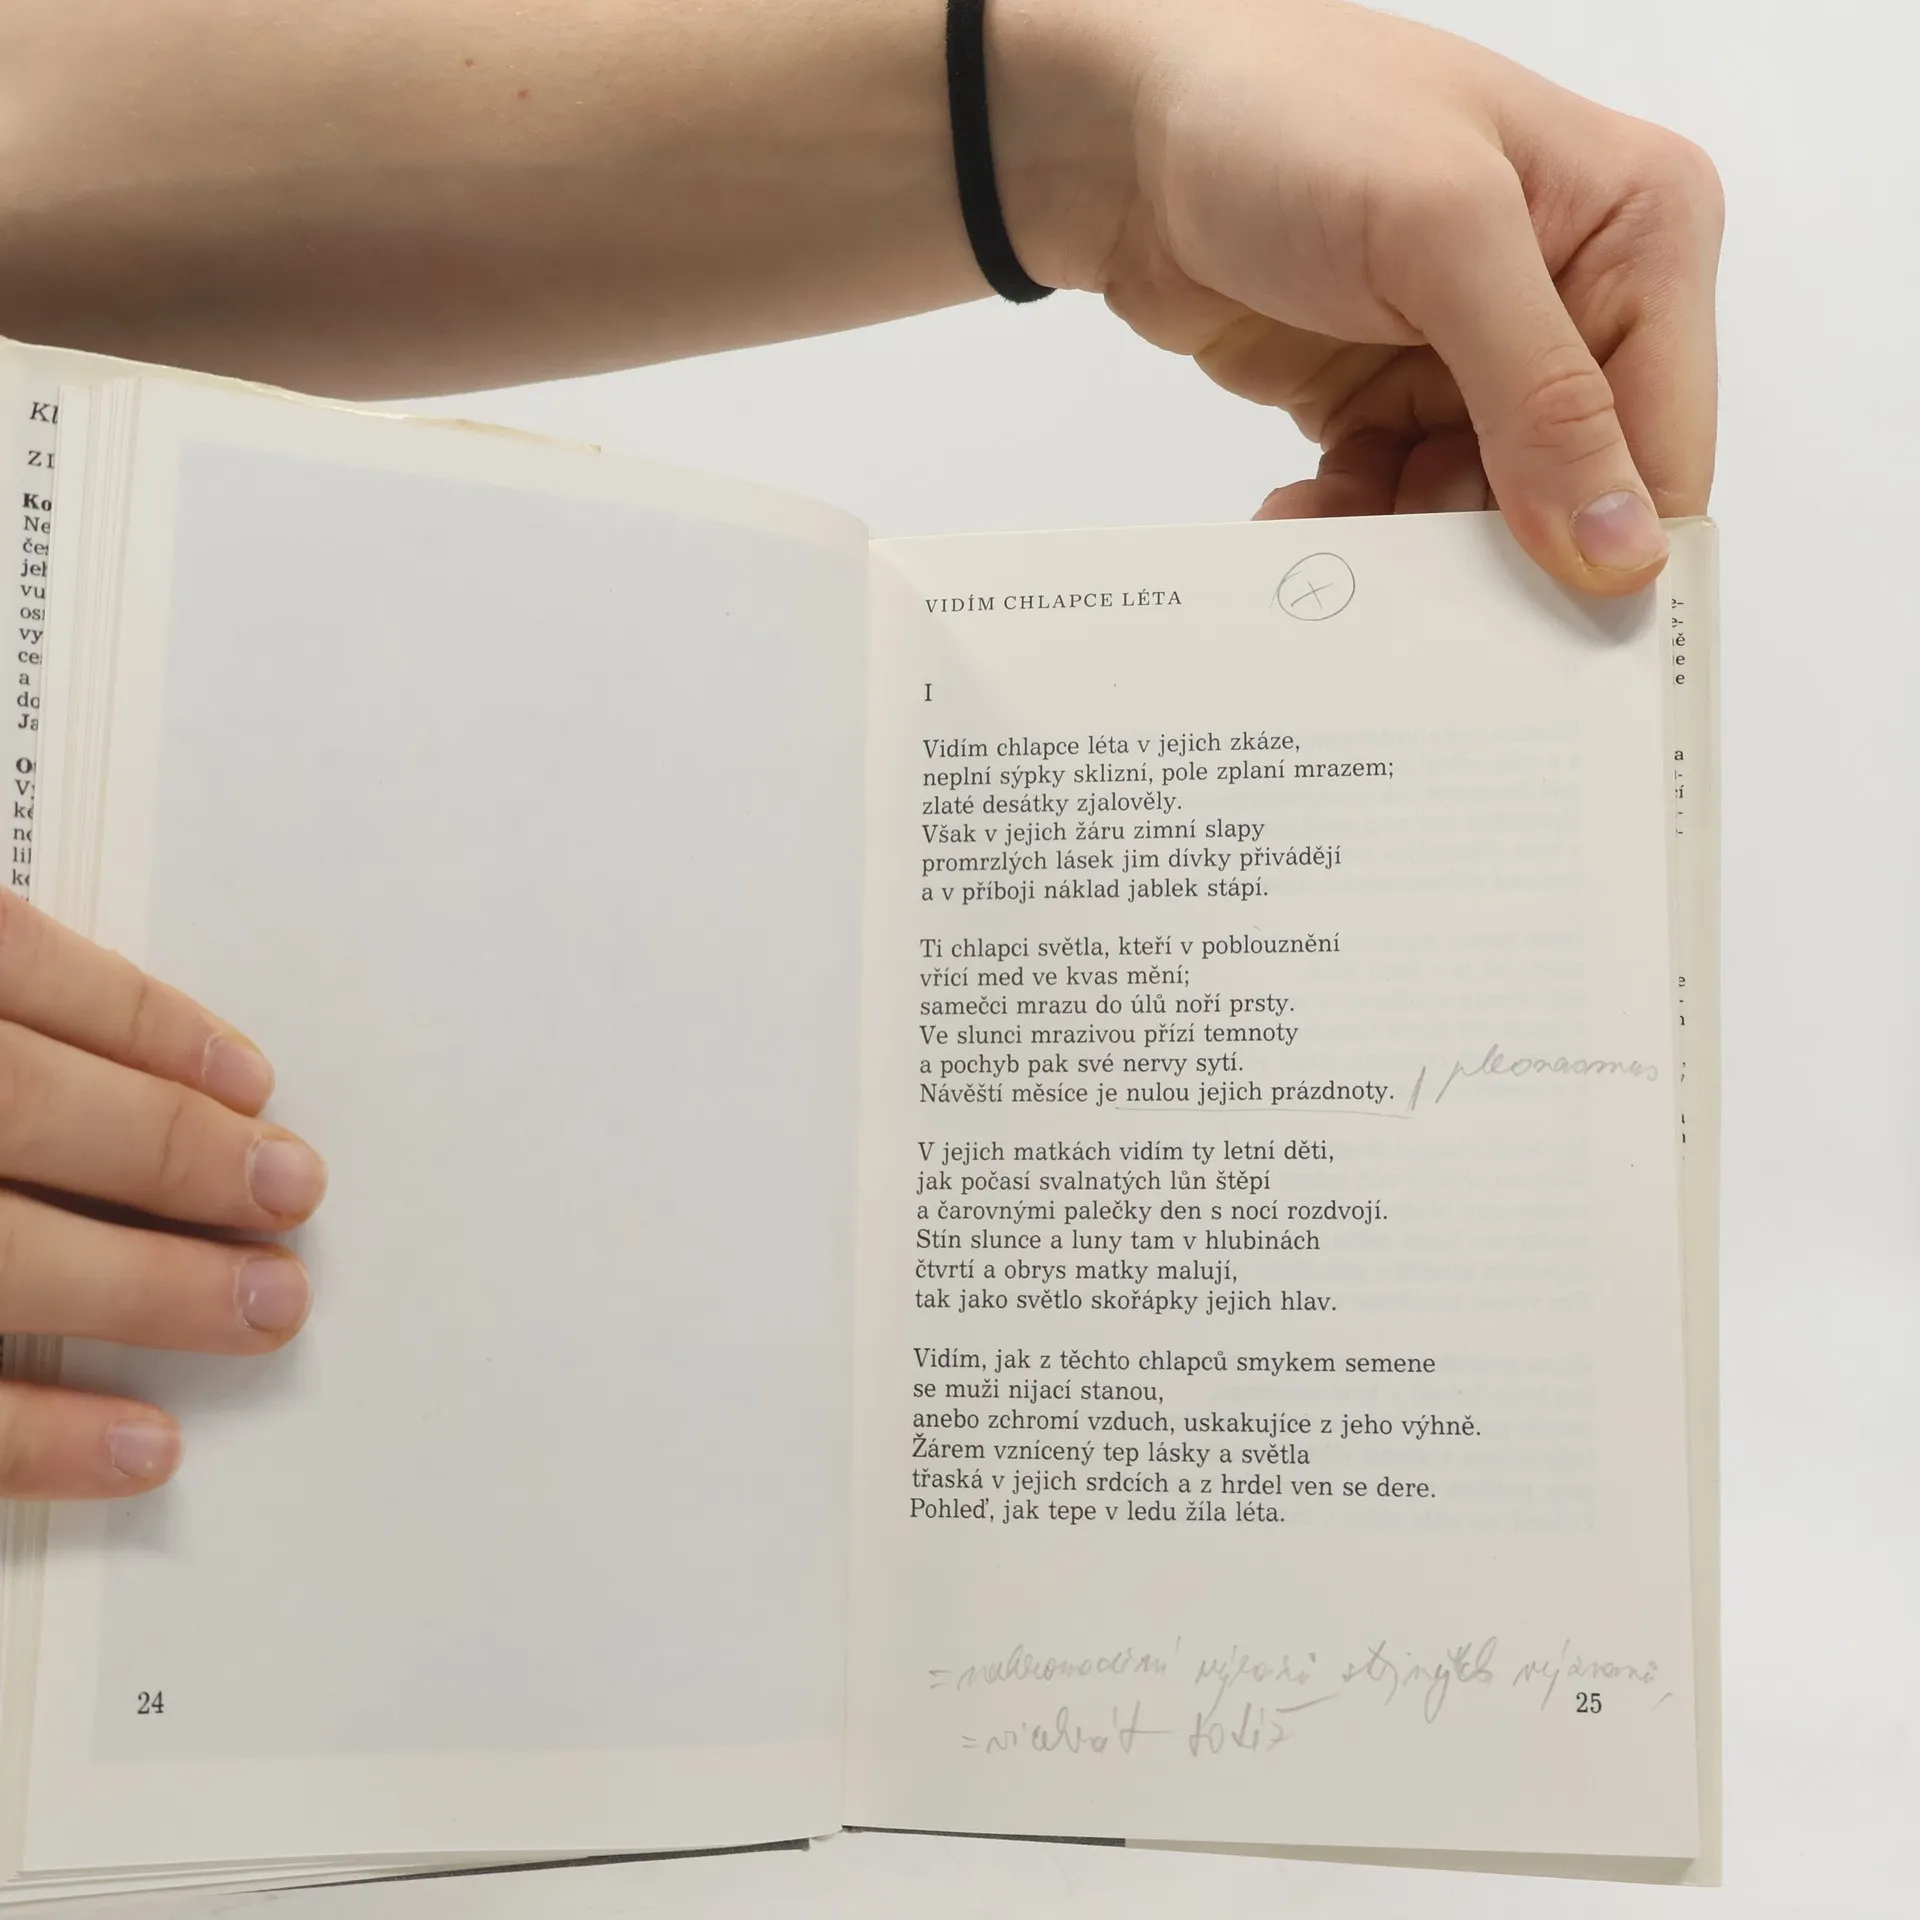 Kl
ZI
Ko
Ne
čes
jeh
vu
osi
vy
ce
a
do
Ja
O
V
ke
no
lil
ke
24
VIDÍM CHLAPCE LÉTA
I
Vidím chlapce léta v jejich zkáze,
neplní sýpky sklizní, pole zplaní mrazem;
zlaté desátky zjalověly.
Však v jejich žáru zimní slapy
promrzlých lásek jim dívky přivádějí
a v příboji náklad jablek stápí.
Ti chlapci světla, kteří v poblouznění
vřící med ve kvas mění;
samečci mrazu do úlů noří prsty.
Ve slunci mrazivou přízí temnoty
a pochyb pak své nervy sytí.
Návěští měsíce je nulou jejich prázdnoty. / pleonasmus
V jejich matkách vidím ty letní děti,
jak počasí svalnatých lůn štěpí
a čarovnými palečky den s nocí rozdvojí.
Stín slunce a luny tam v hlubinách
čtvrtí a obrys matky malují,
tak jako světlo skořápky jejich hlav.
Vidím, jak z těchto chlapců smykem semene
se muži nijací stanou,
anebo zchromí vzduch, uskakujíce z jeho výhně.
Žárem vznícený tep lásky a světla
třaská v jejich srdcích a z hrdel ven se dere.
Pohleď, jak tepe v ledu žíla léta.
= nahromadění výrazů stejných
= vícekrát totéž
25